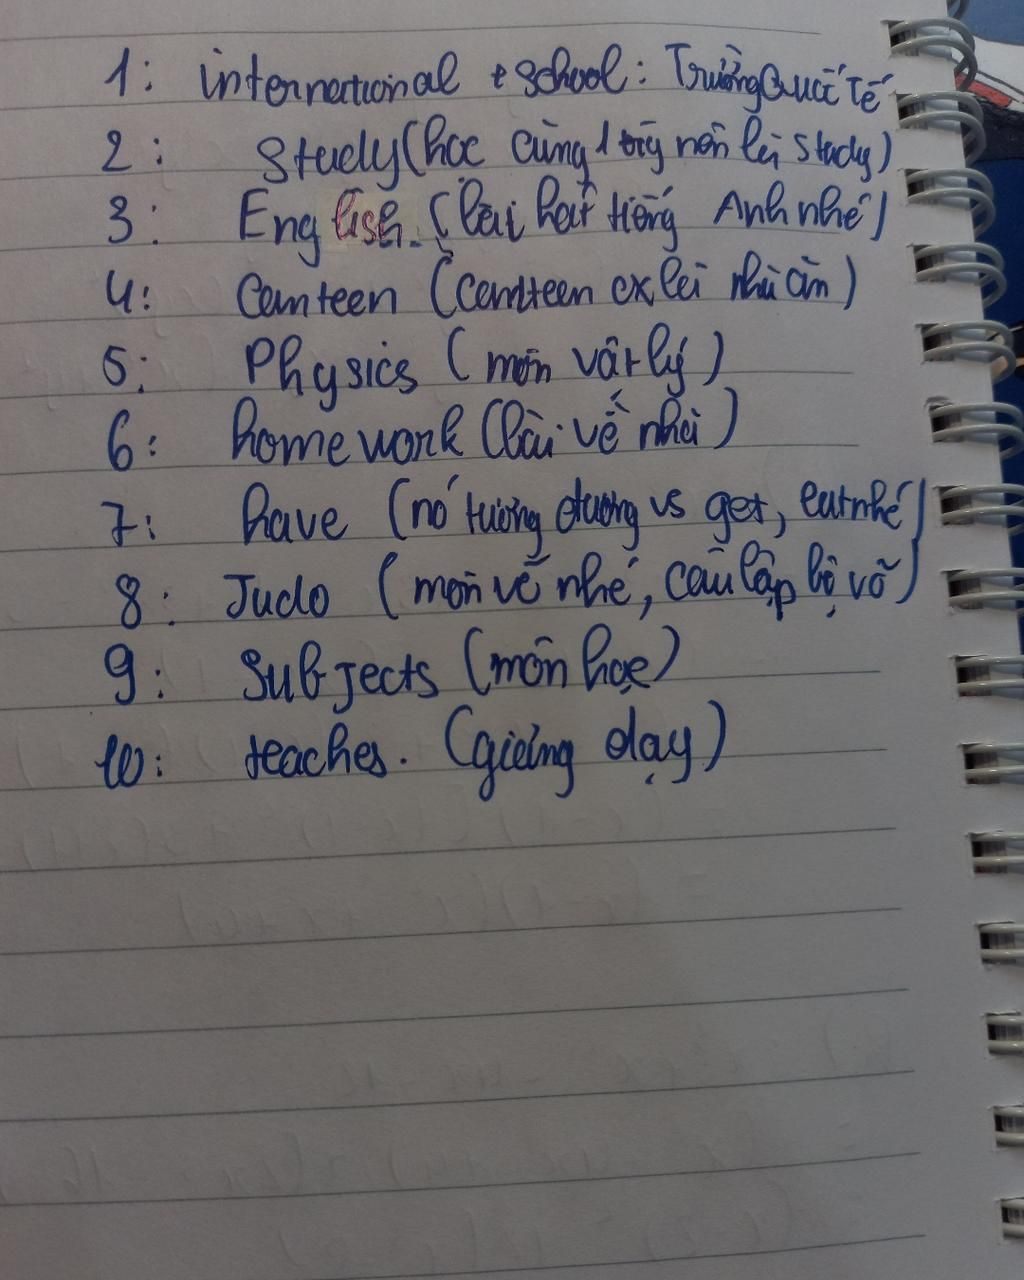 1: international school: Trường Quốc Tế
2: Study (học cùng 1 trg nên là study)
3: English. (bài hát tiếng Anh nhé)
4: Canteen (canteen ex là nhà ăn)
5: Physics (môn vật lý)
6: homework (bài về nhà)
7: have (nó tương đương vs get, eat nhé)
8: Judo (môn võ nhé, câu lập bộ võ)
9: Subjects (môn học)
10: teaches. (giảng dạy)